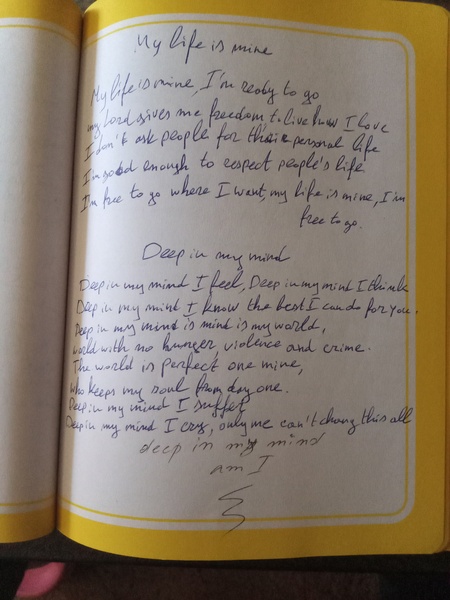 My life is mine
My life is mine, I'm ready to go
my Lord gives me freedom to live how I love
I don't ask people for their personal life
I'm good enough to respect people's life
I'm free to go where I want, my life is mine, I'm
free to go.
Deep in my mind
Deep in my mind I feel, Deep in my mind I think
Deep in my mind I know the best I can do for you.
Deep in my mind is mind is my world,
world with no hunger, violence and crime.
The world is perfect one mine,
who keeps my soul from day one.
Deep in my mind I suffer
Deep in my mind I cry, only me can't chang this all
deep in my mind
am I